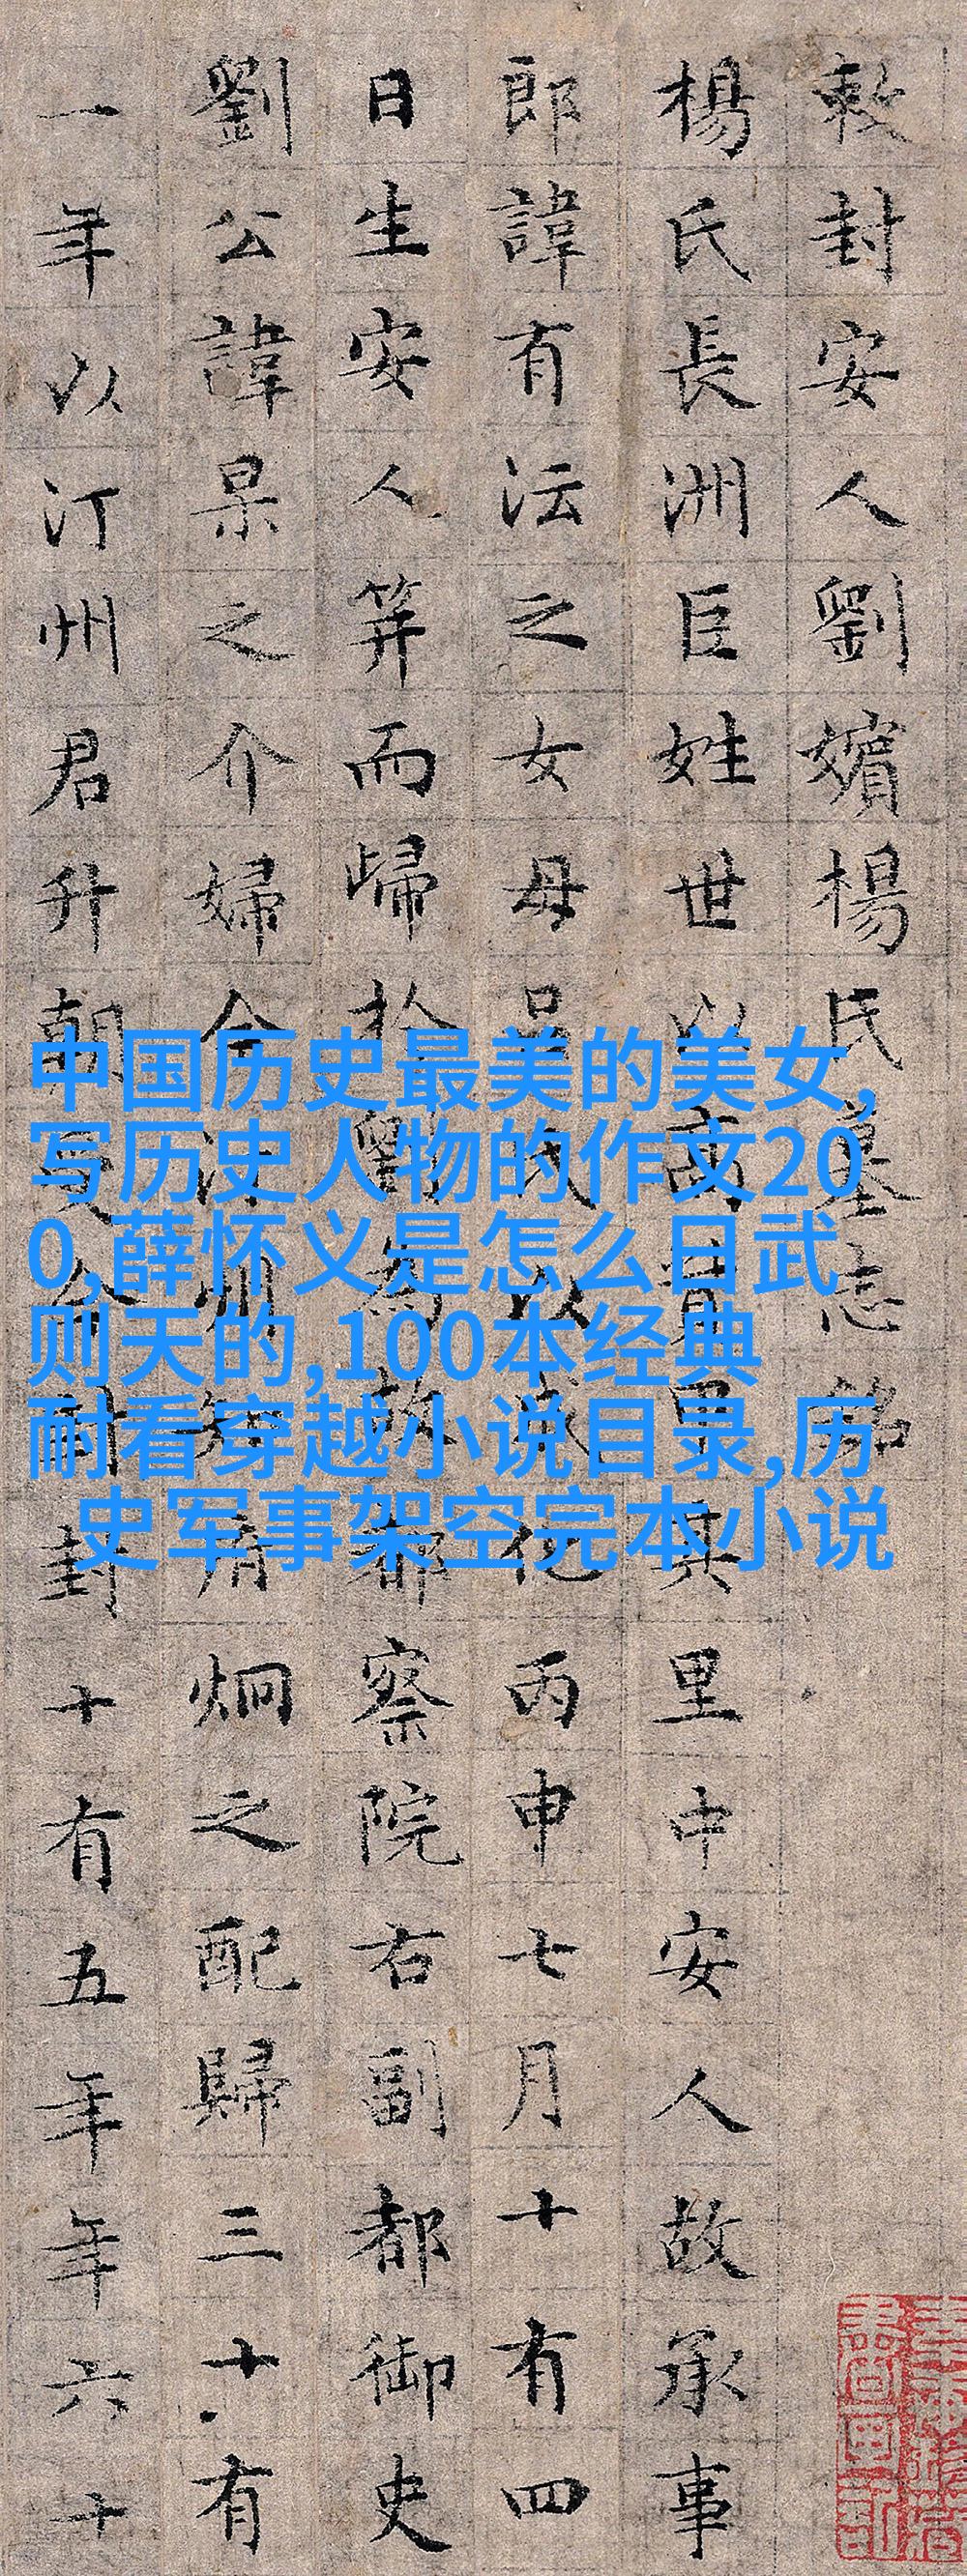 敕封安人劉孀楊氏墓志銘
楊氏長洲巨姓世以高其里中安人故承事
郎諱有沄之女母呂氏以化丙申七月十有四
日生安人笄而歸於劉為故都察院右副都御史
劉公諱杲之介婦今汀州炯之配歸三十有
一年以汀州君升朝受今封十有五年年六十
中国历史最美的美女,
写历史人物的作文20
0,薛怀义是怎么日武
则天的,100本经典
耐看穿越小说目录,历
史军事架空完本小说